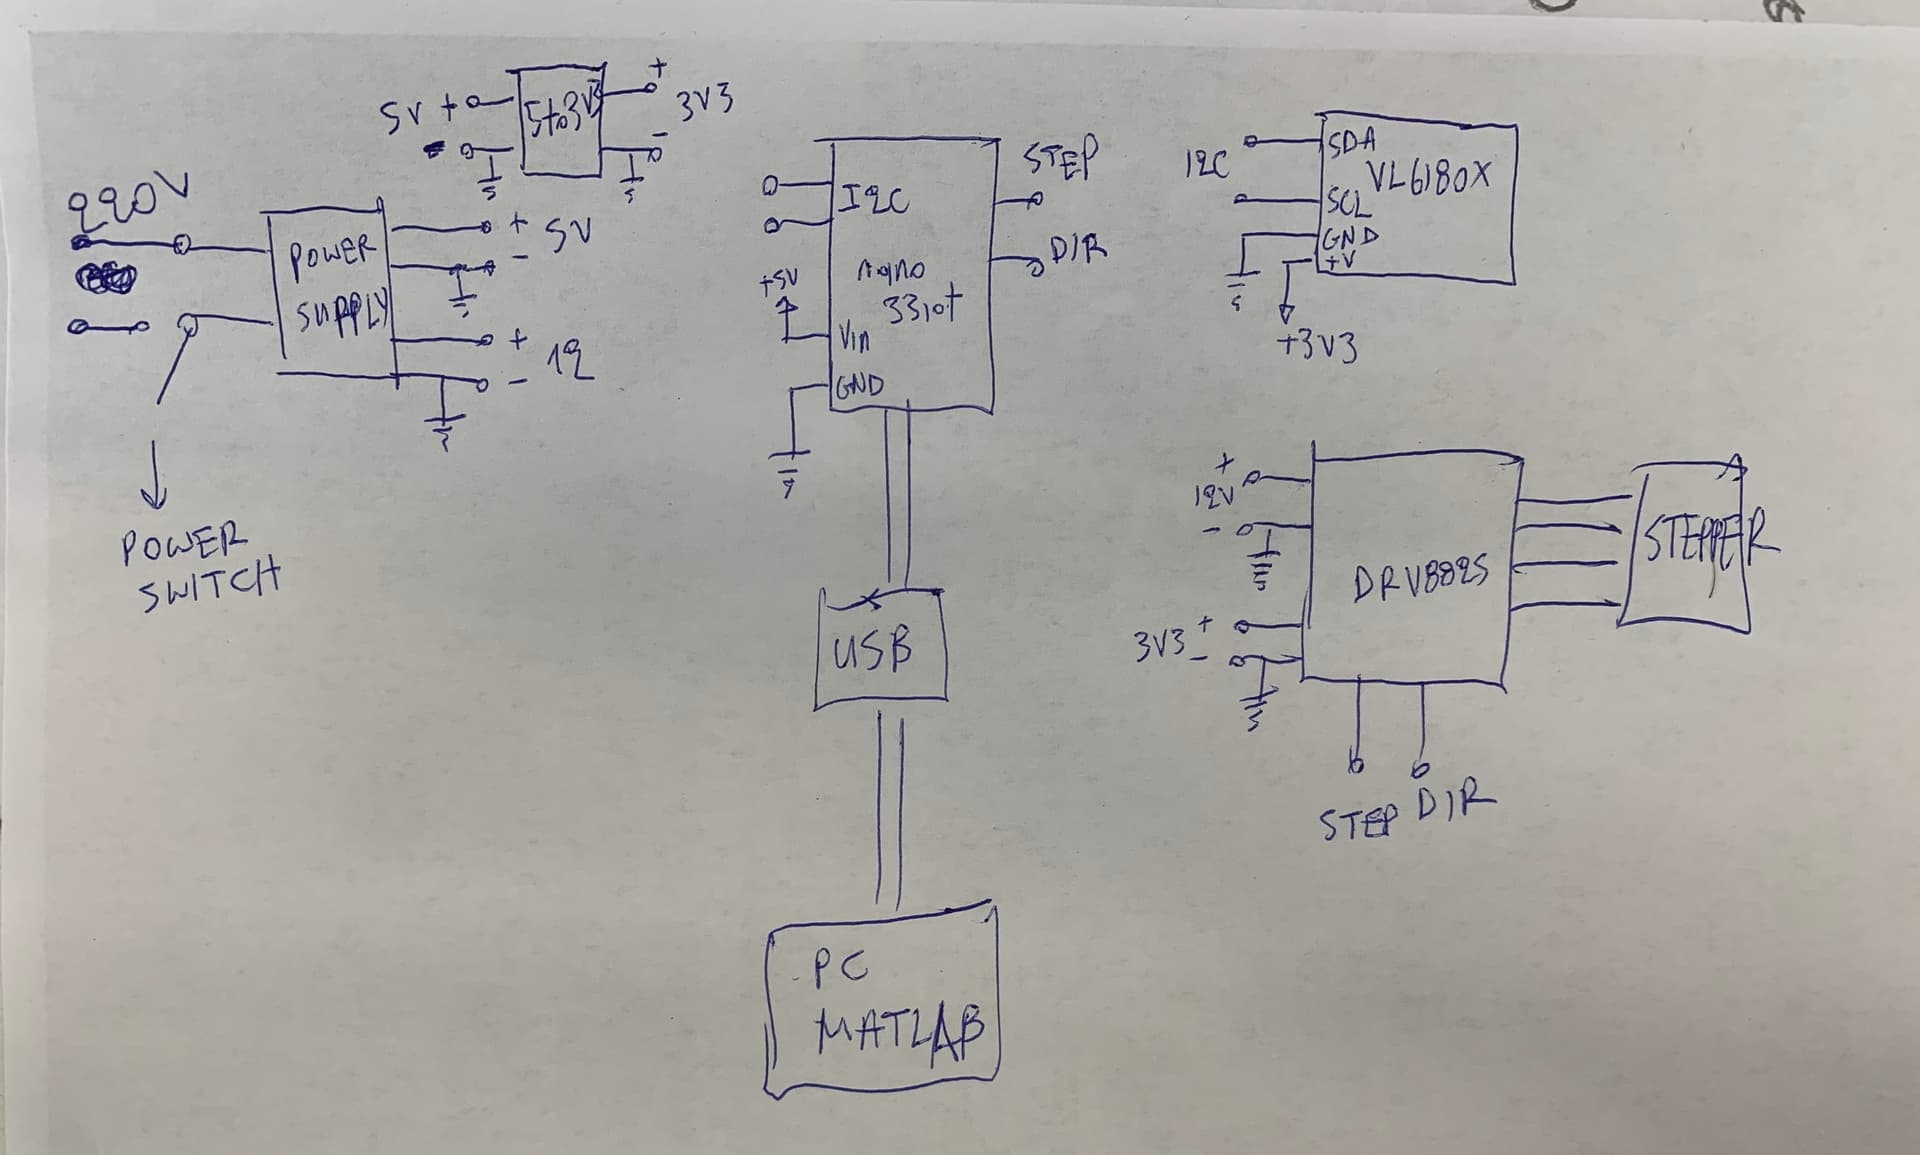 220V
POWER
SWITCH
POWER
SUPPLY
+ 5V
-
+ 12
-
5V +
-
5to3V3
+
3V3
-
I2C
nano
33iot
+5V
Vin
GND
STEP
DIR
USB
PC
MATLAB
I2C
SDA
VL6180X
SCL
GND
+V
+3V3
+
12V
-
3V3 +
-
DRV8825
STEPPER
STEP DIR